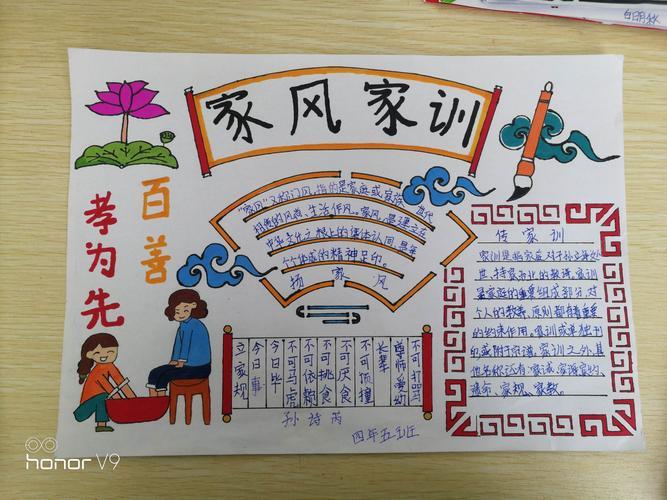 家风家训
百善
孝为先
"家风"又称门风,指的是家庭或家族世代
相传的风尚、生活作风。家风,是建立在
中华文化之根上的集体认同,是每
个个体成的精神足印。
扬家风
传家训
家训是指家庭对子孙立身处
世、持家治业的教诲。家训
是家庭的重要组成部分,对
个人的教养、原则都有着重要
的约束作用。家训或单独刊
印或附于宗谱。家训之外,其
他名称还有家诫、家诲、家约、
遗命、家规、家教。
不可打骂
尊师爱幼
长辈
不可顶撞
不可厌食
不可挑食
不可依赖
不可马虎
今日毕
今日事
立家规
孙诗芮
四年五班
honor V9